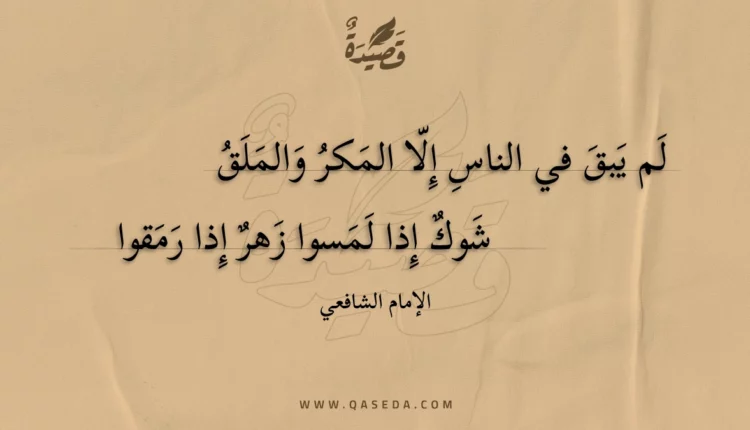 قَصِيدَةٌ
لَم يَبقَ في الناسِ إِلّا المَكرُ وَالمَلَقُ
شَوكٌ إِذا لَمَسوا زَهرٌ إِذا رَمَقوا
الإمام الشافعي
WWW.QASEDA.COM